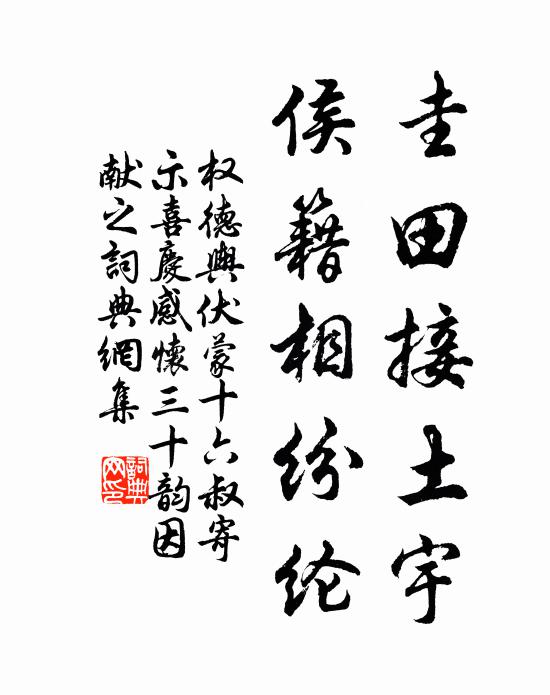 圭田接土宇
侯籍相纷纶
权德舆伏蒙十六叔寄
示喜慶感懷三十韵因
献之詞典網集
詞典网印